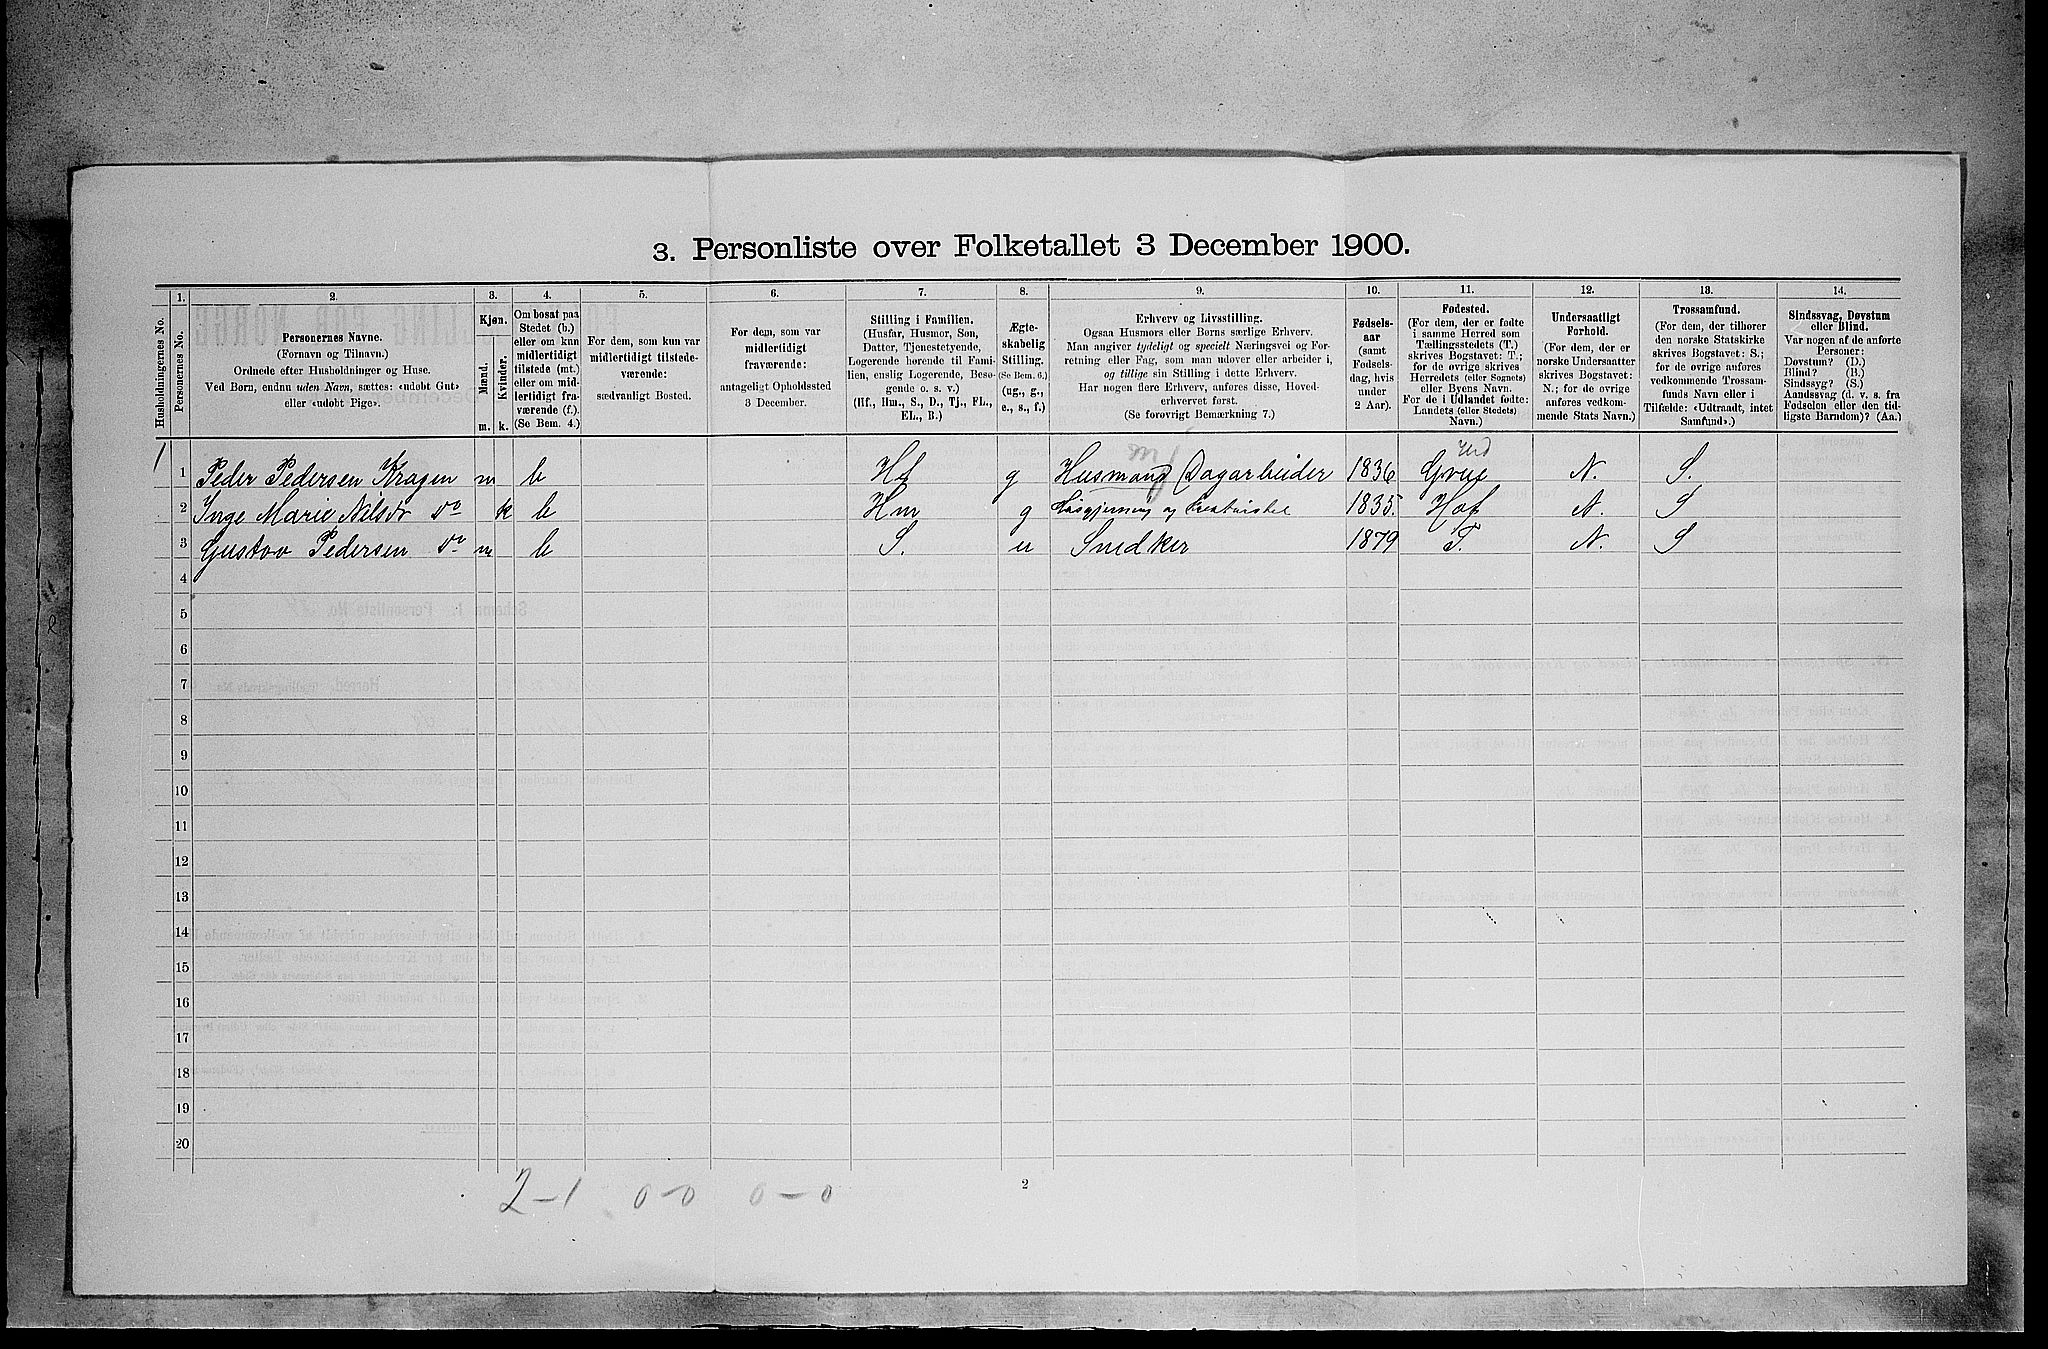 3. Personliste over Folketallet 3 December 1900.
Husholdningernes No.
1.
Personernes No.
2.
Personernes Navne.
(Fornavn og Tilnavn.)
Ordnede efter Husholdninger og Huse.
Ved Børn, endnu uden Navn, sættes: «udøbt Gut»
eller «udøbt Pige».
3.
Kjøn.
Mænd.
Kvinder.
m. k.
4.
Om bosat paa
Stedet (b.)
eller om kun
midlertidigt
tilstede (mt.)
eller om mid-
lertidigt fra-
værende (f.).
(Se Bem. 4.)
5.
For dem, som kun var
midlertidigt tilstede-
værende:
sædvanligt Bosted.
6.
For dem, som var
midlertidigt
fraværende:
antageligt Opholdssted
3 December.
7.
Stilling i Familien.
(Husfar, Husmor, Søn,
Datter, Tjenestetyende,
Logerende hørende til Fami-
lien, enslig Logerende, Besø-
gende o. s. v.)
(Hf., Hm., S., D., Tj., FL.,
EL., B.)
8.
Ægte-
skabelig
Stilling.
(Se Bem. 6.)
(ug., g.,
e., s., f.)
9.
Erhverv og Livsstilling.
Ogsaa Husmors eller Børns særlige Erhverv.
Man angiver tydeligt og specielt Næringsvei og For-
retning eller Fag, som man udøver eller arbeider i,
og tillige sin Stilling i dette Erhverv.
Har nogen flere Erhverv, anføres disse, Hoved-
erhvervet først.
(Se forøvrigt Bemærkning 7.)
10.
Fødsels-
aar
(samt
Fødsels-
dag, hvis
under
2 Aar).
11.
Fødested.
(For dem, der er fødte
i samme Herred som
Tællingsstedets (T.)
skrives Bogstavet: T.;
for de øvrige skrives
Herredets (eller Sognets)
eller Byens Navn.
For de i Udlandet fødte:
Landets (eller Stedets)
Navn.)
12.
Undersaatligt
Forhold.
(For dem, der er
norske Undersaatter
skrives Bogstavet:
N.; for de øvrige
anføres vedkom-
mende Stats Navn.)
13.
Trossamfund.
(For dem, der tilhører
den norske Statskirke
skrives Bogstavet: S.;
for de øvrige anføres
vedkommende Trossam-
funds Navn eller i
Tilfælde: «Udtraadt, intet
Samfund».)
14.
Sindssvag, Døvstum
eller Blind.
Var nogen af de anførte
Personer:
Døvstum? (D.)
Blind? (B.)
Sindssyg? (S.)
Aandssvag (d. v. s. fra
Fødselen eller den tid-
ligste Barndom)? (Aa.)
1 1 Peder Pedersen Kragen m b Hf g Husmand Dagarbeider 1836 Grue N. S.
2 Inge Marie Nilsdr do k b Hm g Husgjerning og Kreaturstel 1835. Hof N. S
3 Gustav Pedersen do m b S. u Snedker 1879 T. N. S
4
5
6
7
8
9
10
11
12
13
14
15
16
17
18
19
20
2-1 0-0 0-0
2